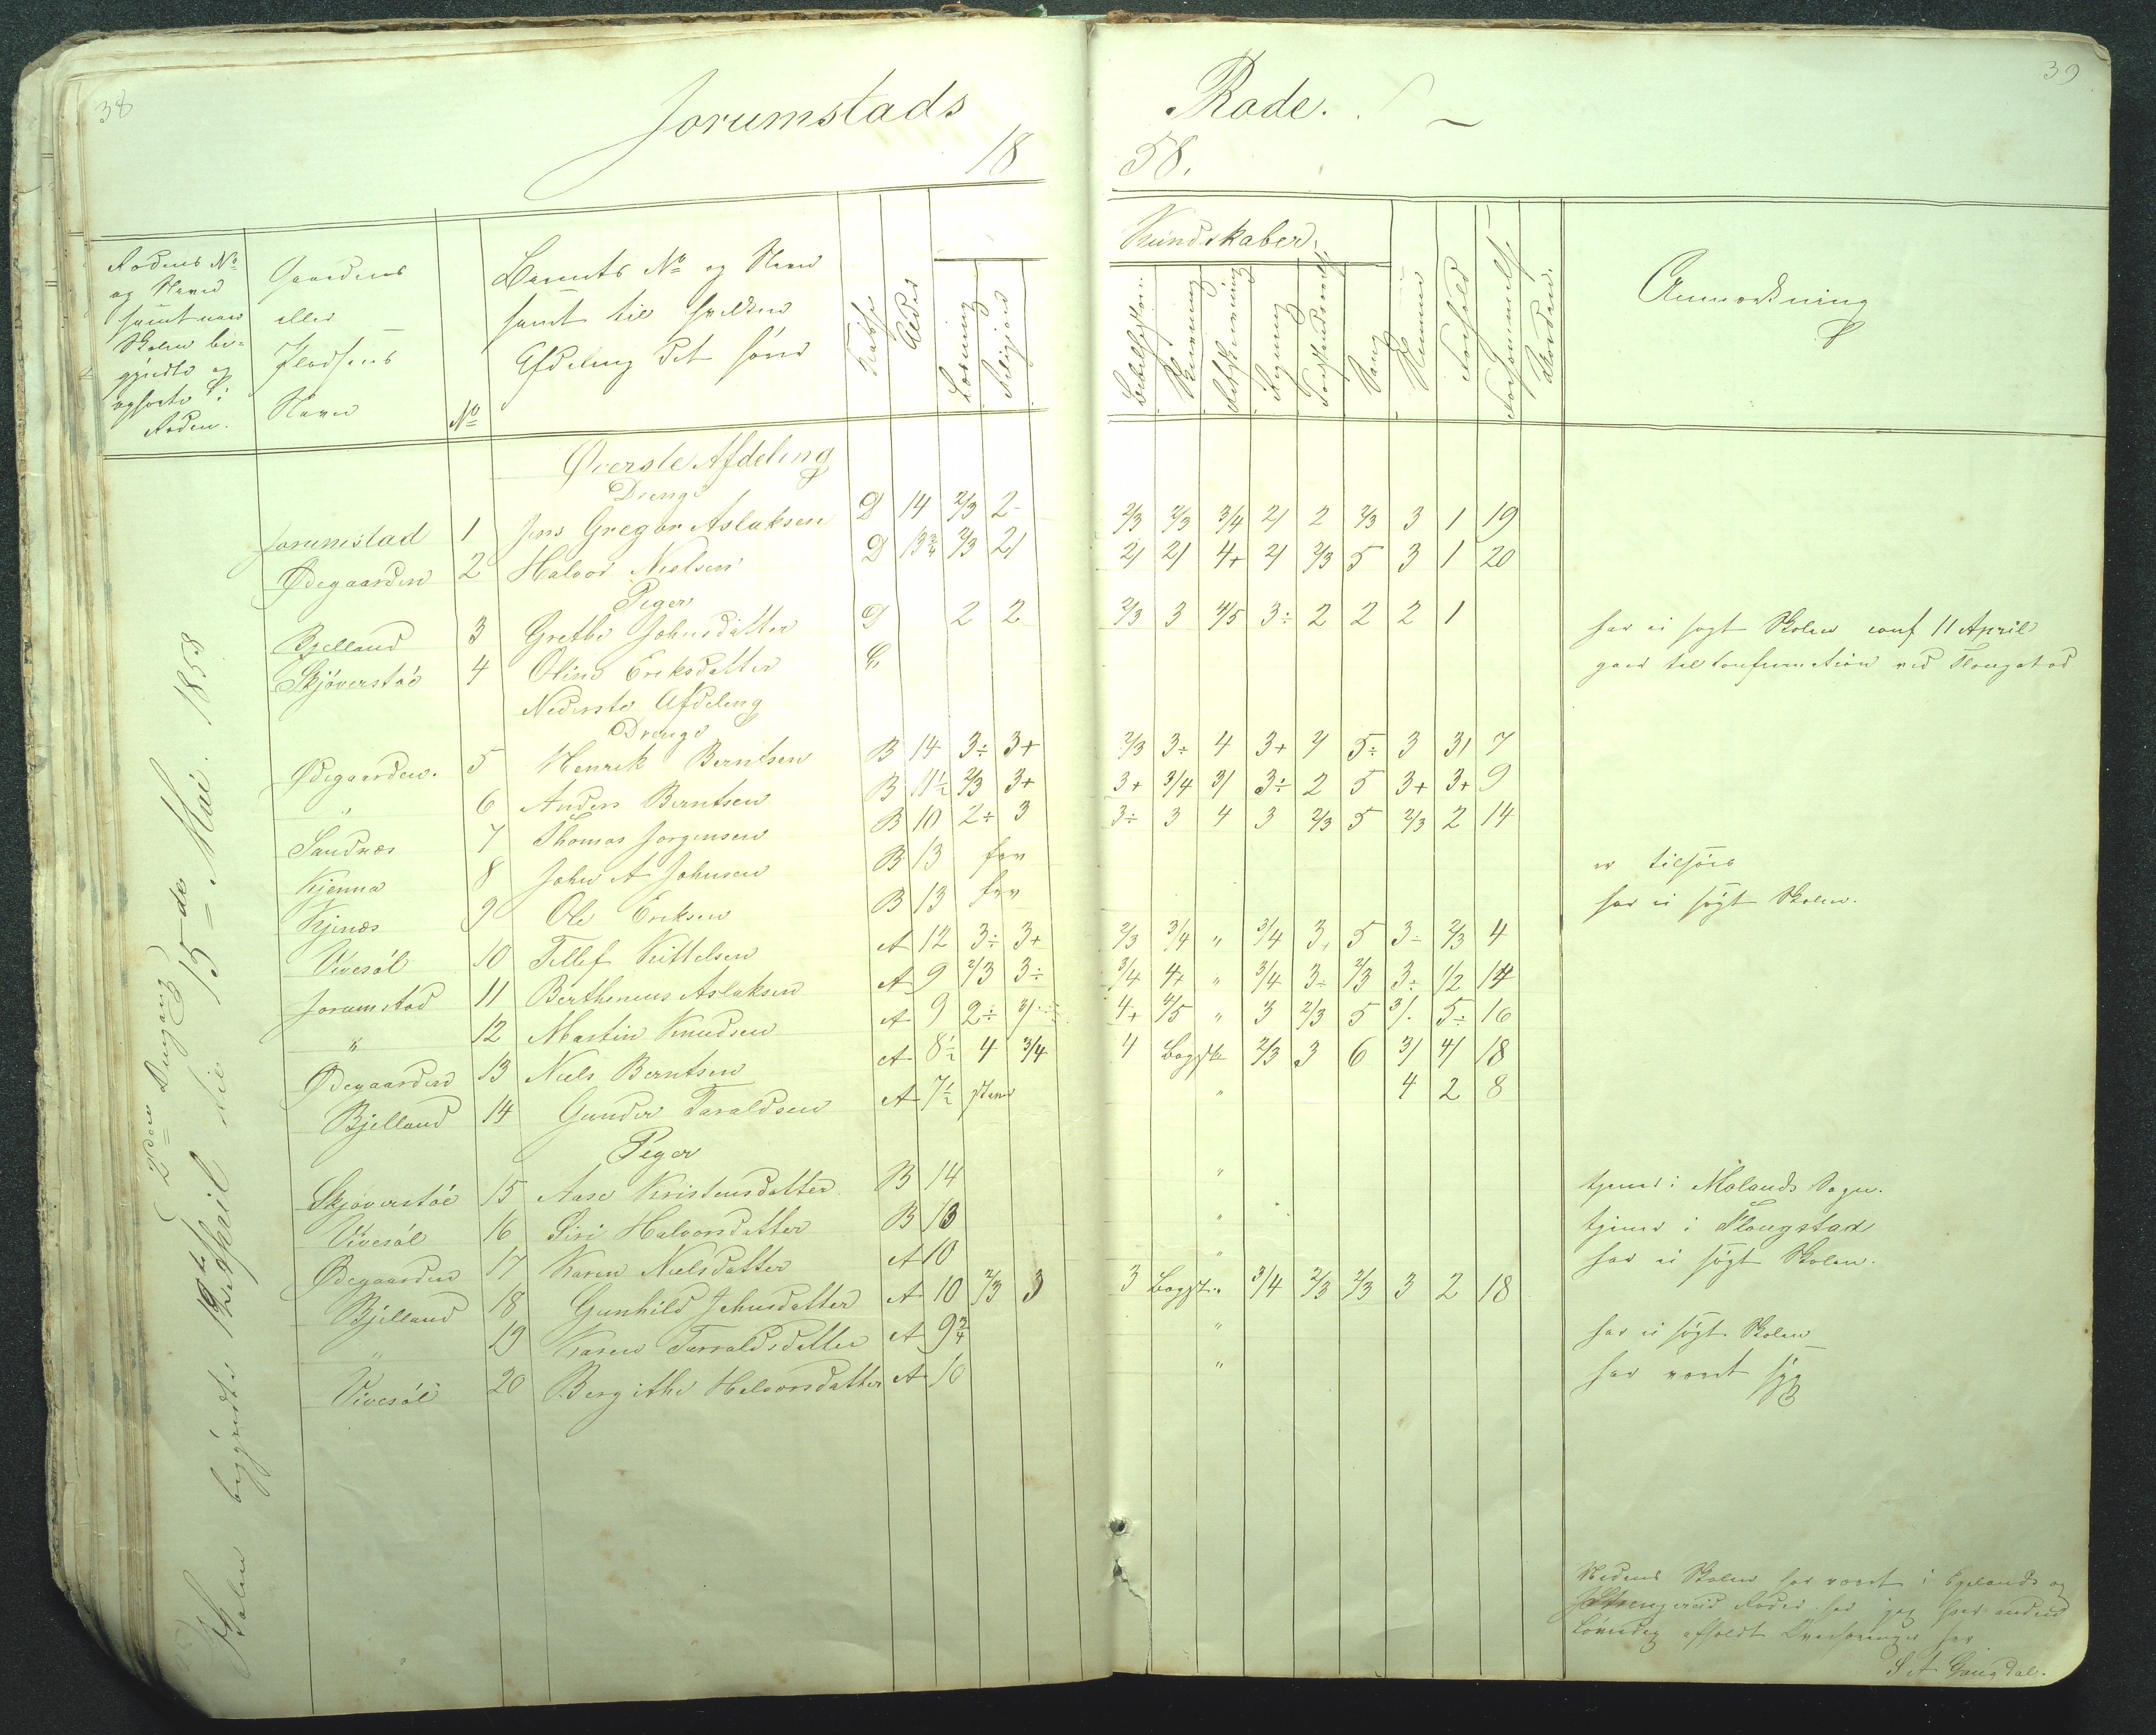 38
39
Jorumstads Rode.
1858.
Rodens No
og Navn
samt naar
Skolen be-
gyndte og
ophørte i
Roden.
Gaardens
eller
Pladsens
Navn
No
Barnets No og Navn
samt til hvilken
Afdeling det hører
Klasse
Alder
Kundskaber.
Læsning
Religion
Bibelhistorie
Skrivning
Retskrivning
Regning
Sang
Nemme
Forhold
Forsømmelse
Anmærkning
2den Omgang
Skolen begyndte 19de April til 15de Mai. 1858
Øverste Afdeling
Drenge
Jorumstad 1 Jens Gregor Aslaksen D 14 2/3 2 2/3 2/3 3/4 2/ 2 2/3 3 1 19
Ødegaarden 2 Halvor Nielsen D 13 3/4 2/3 2/ 2/ 2/ 4+ 2/ 2/3 5 3 1 20
Piger
Bjelland 3 Grethe Johnsdatter D 2 2 2/3 3 4/5 3÷ 2 2 2 1 har ei søgt Skolen conf 11 April
Skjøverstøe 4 Oline Eriksdatter C gaar til Confirmation ved Flougstad
Nederste Afdeling
Drenge
Ødegaarden. 5 Henrik Berntsen B 14 3÷ 3+ 2/3 3÷ 4 3+ 2/ 5÷ 3 3/ 7
" 6 Anders Berntsen B 11½ 2/3 3+ 3+ 3/4 3/ 3÷ 2 5 3+ 3+ 9
Sandnæs 7 Thomas Jorgensen B 10 2÷ 3 3÷ 3 4 3 2/3 5 2/3 2 14
Kjenna 8 John A Johnsen B 13 er tilsøes
Kjenæs 9 Ole Eriksen B 13 har ei søgt Skolen.
Vivesøl 10 Tellef Kittelsen A 12 3÷ 3+ 2/3 3/4 " 3/4 3+ 5 3÷ 2/3 4
Jorumstad 11 Berthinius Aslaksen A 9 2/3 3÷ 3/4 4+ " 3/4 3÷ 2/3 3÷ 1/2 14
" 12 Martin Knudsen A 9 2÷ 3/. 4+ 4/5 " 3 2/3 5 3/. 5÷ 16
Ødegaarden 13 Niels Berntsen A 8½ 4 3/4 4 Bogst. 2/3 3 6 3/ 4/ 18
Bjelland 14 Gunder Taraldsen A 7½ stav " 4 2 8
Piger
Skjøverstøe 15 Aase Kristensdatter B 14 " tjener i Molands Sogn.
Vivesøl 16 Siri Halvorsdatter B 13 " tjener i Flougstad
Ødegaarden 17 Karen Nielsdatter A 10 " har ei søgt Skolen.
Bjelland 18 Gunhild Johnsdatter A 10 2/3 3 3 Bogst. " 3/4 2/3 2/3 3 2 18
" 19 Karen Tarraldsdatter A 9 3/4 " har ei søgt Skolen
Vivesøl 20 Bergithe Halvorsdatter A 10 " har været syg
Medens Skolen har været i Egelands og
Roder har jeg hver anden
Løverdag afholdt her
S A Gougdal.